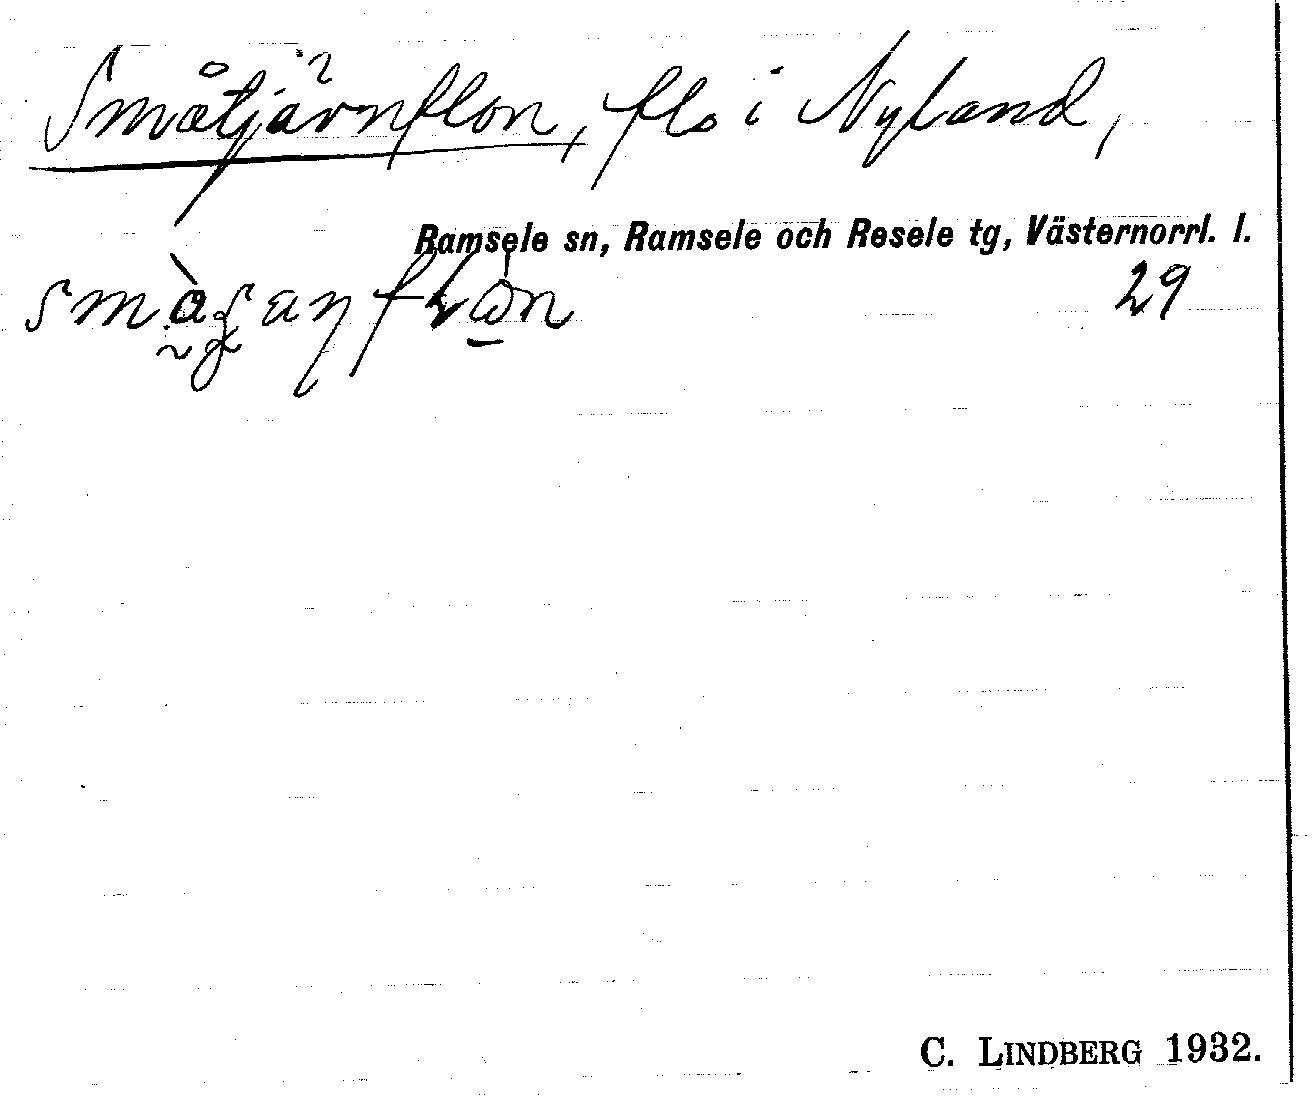 Småtjärnflon, flo i Nyland,
Ramsele sn, Ramsele och Resele tg, Västernorrl. l.
29
C. LINDBERG 1932.